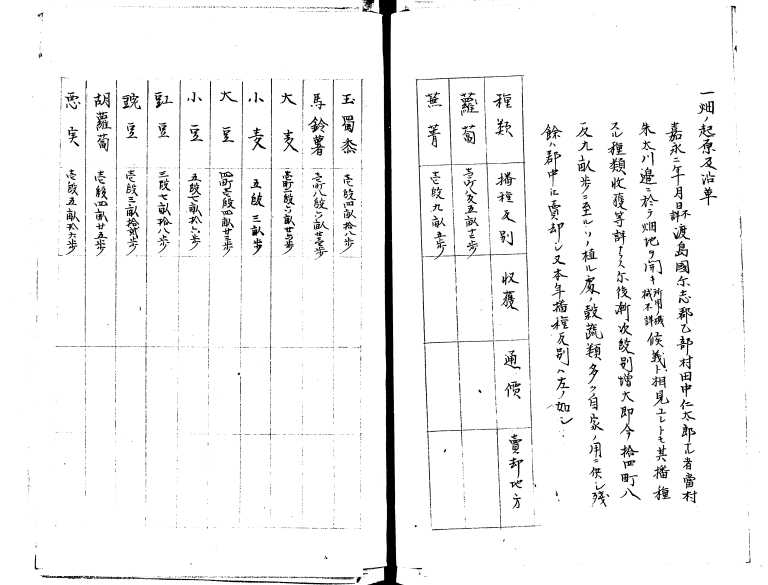 一畑ノ起原及沿革
嘉永二年月日不詳渡島國尓志郡乙部村田中仁太郎ナル者當村
朱太川邉ニ於テ畑地ヲ開キ所用ノ機械不詳候義ト相見エレトモ其播種
スル種類収獲等詳ナラス尓後漸次段別増大即今拾四町八
反九畝歩ニ至ルソノ植ル處ノ穀蔬類多ク自家ノ用ニ供シ残
餘ハ郡中ニ賣却シ又本年播種反別ハ左ノ如シ
種類 播種反別 収獲 通價 賣却地方
蘿蔔
蕪菁 壱段九畝五歩
玉蜀黍 壱段四畝拾八歩
馬鈴薯 壱町八段六畝廿壱歩
大麦
小麦 五段三畝歩
大豆 四町壱段四畝廿三歩
小豆 五段七畝拾六歩
豇豆 三段七畝拾八歩
豌豆 壱段三畝拾弐歩
胡蘿蔔 壱段四畝廿五歩
壱段五畝拾六歩